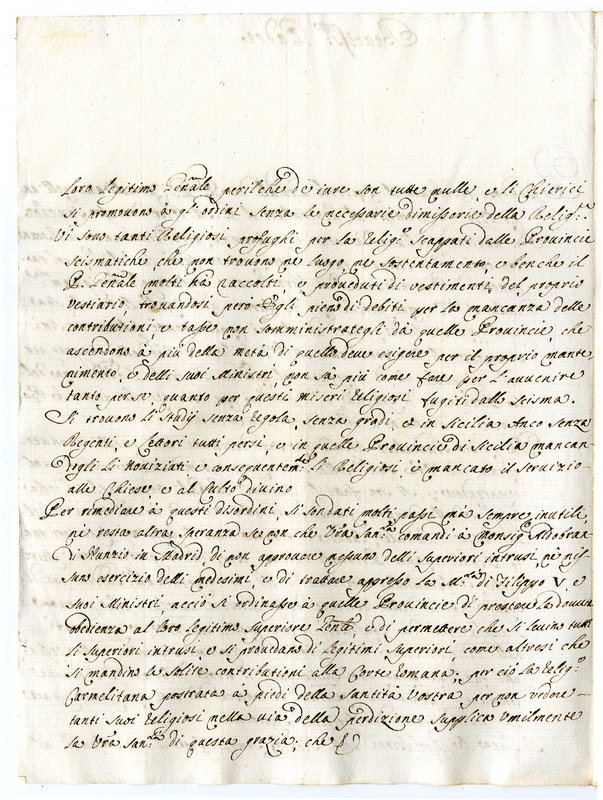 loro legitimo Genãle, perilche de iure son tutte nulle, e li Chierici
si promovono à gl'ordini senza le necessarie dimissorie della Relig.ne
Vi sono tanti Religiosi profughi per la Relig.e scappati dalle Provincie
scismatiche che non trovono ne luogo ne sostentamento, e benche il
P. Genãle molti hà raccolti, e proveduti di vestimenti, del proprio
vestiario, trovandosi però Egli pieno di debiti per la mancanza delle
contributioni, e tasse non somministrategli dà quelle Provincie, che
ascendono à più della metà di quello deve esigere per il proprio mante
nimento, e delli suoi Ministri, non sà più come fare per l'auvenire
tanto per se, quanto per questi miseri Religiosi fugiti dallo scisma.
Si trovono li Studij senza regola, senza gradi, et in Sicilia Anco senza
Regenti, e Lettori tutti persi, e in quelle Provincie di Sicilia mancan-
dogli li Noviziati, e conseguentem.te li Religiosi, è mancato il servizio
alle Chiese, e al Culto divino
Per rimediare à questi disordini, si son dati molti passi mà sempre inutili,
ne resta altra speranza se non che Vrã San.tà comandi à Monsig.r Aldobran-
di Nunzio in Madrid di non approvare nessuno delli superiori intrusi, ne nis-
suno esercizio delli medesimi, e di trattare appresso la M.tà di Filippo V. e
suoi Ministri, acciò si ordinasse à quelle Provincie di prestare la dovuta
obedienza al loro legitimo superiore Genãle, e di permettere che si levino tutti
li superiori intrusi, e si provedano di legitimi superiori, come altresi che
si mandino le solite contributioni alla Corte Romana; per ciò la Relig.e
Carmelitana postrata à piedi della Santità Vostra per non vedere
tanti suoi Religiosi nella via della perdizione supplica umilmente
la Vrã San.tà di questa grazia; che